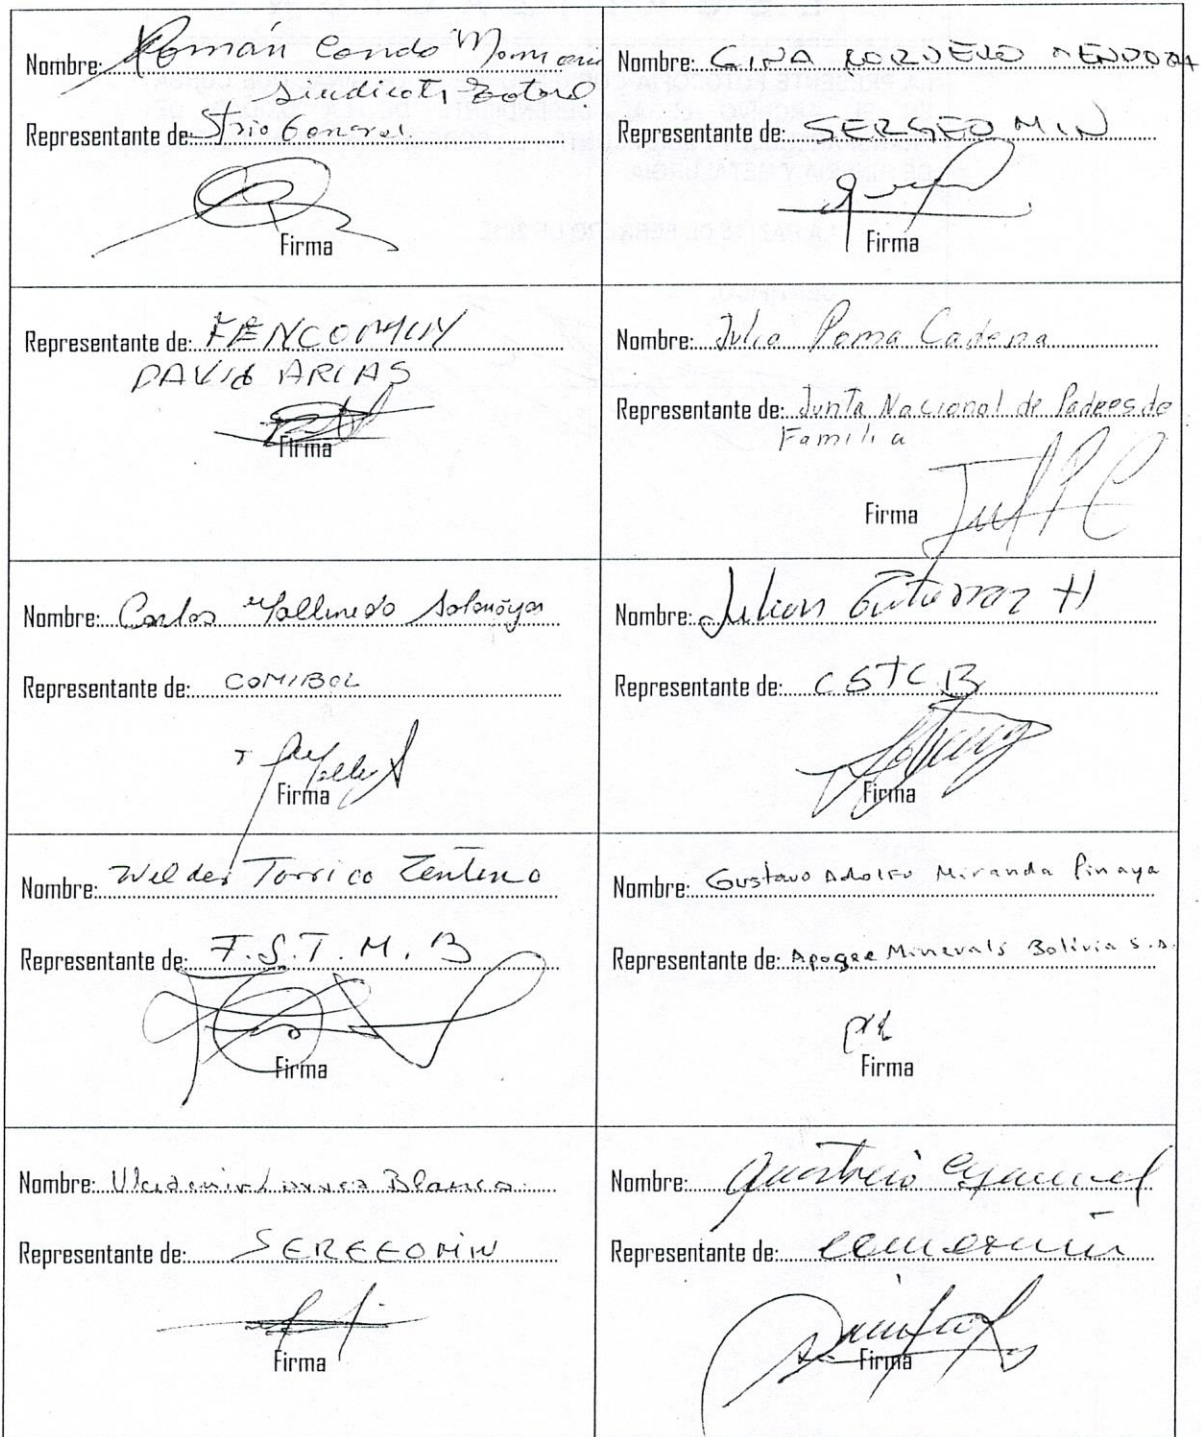 Nombre: Román Condo Mamani
Sindicato Totoral
Representante de: Strio General
Firma
Nombre: GINA MENDOZA
Representante de: SERGEO MIN
Firma
Representante de: FENCOMIN
DAVID ARIAS
Firma
Nombre: Julio Poma Cadena
Representante de: Junta Nacional de Padres de
Familia
Firma
Nombre: Carlos Mallinedo
Representante de: COMIBOL
Firma
Nombre: Julian Gutierrez H
Representante de: CSTCB
Firma
Nombre: Welder Torrico Zenteno
Representante de: F.S.T.M.B
Firma
Nombre: Gustavo Adolfo Miranda Pinaya
Representante de: Apogee Minerals Bolivia S.A.
Firma
Nombre: Blanco
Representante de: SEREEOMIN
Firma
Nombre:
Representante de:
Firma